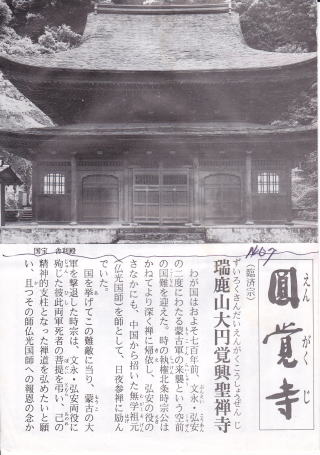 圓覚寺
えんがくじ
(臨済宗)
ずいろくさんだいえんがくこうしょうぜんじ
瑞鹿山大円覚興聖禅寺
わが国はおよそ七百年前、文永・弘安
の二度にわたる蒙古軍の来襲という空前
の国難を迎えた。時の執権北条時宗公は
かねてより深く禅に帰依し、弘安の役の
さなかにも、中国から招いた無学祖元
(仏光国師)を師として、日夜参禅に励ん
でいた。
国を挙げてこの難敵に当り、蒙古の大
軍を撃退した時宗は、文永・弘安両役に
殉じた彼此両軍死者の菩提を弔い、己の
精神的支柱となった禅道を弘めたいと願
い、且つその師仏光国師への報恩の念か
国宝 舎利殿